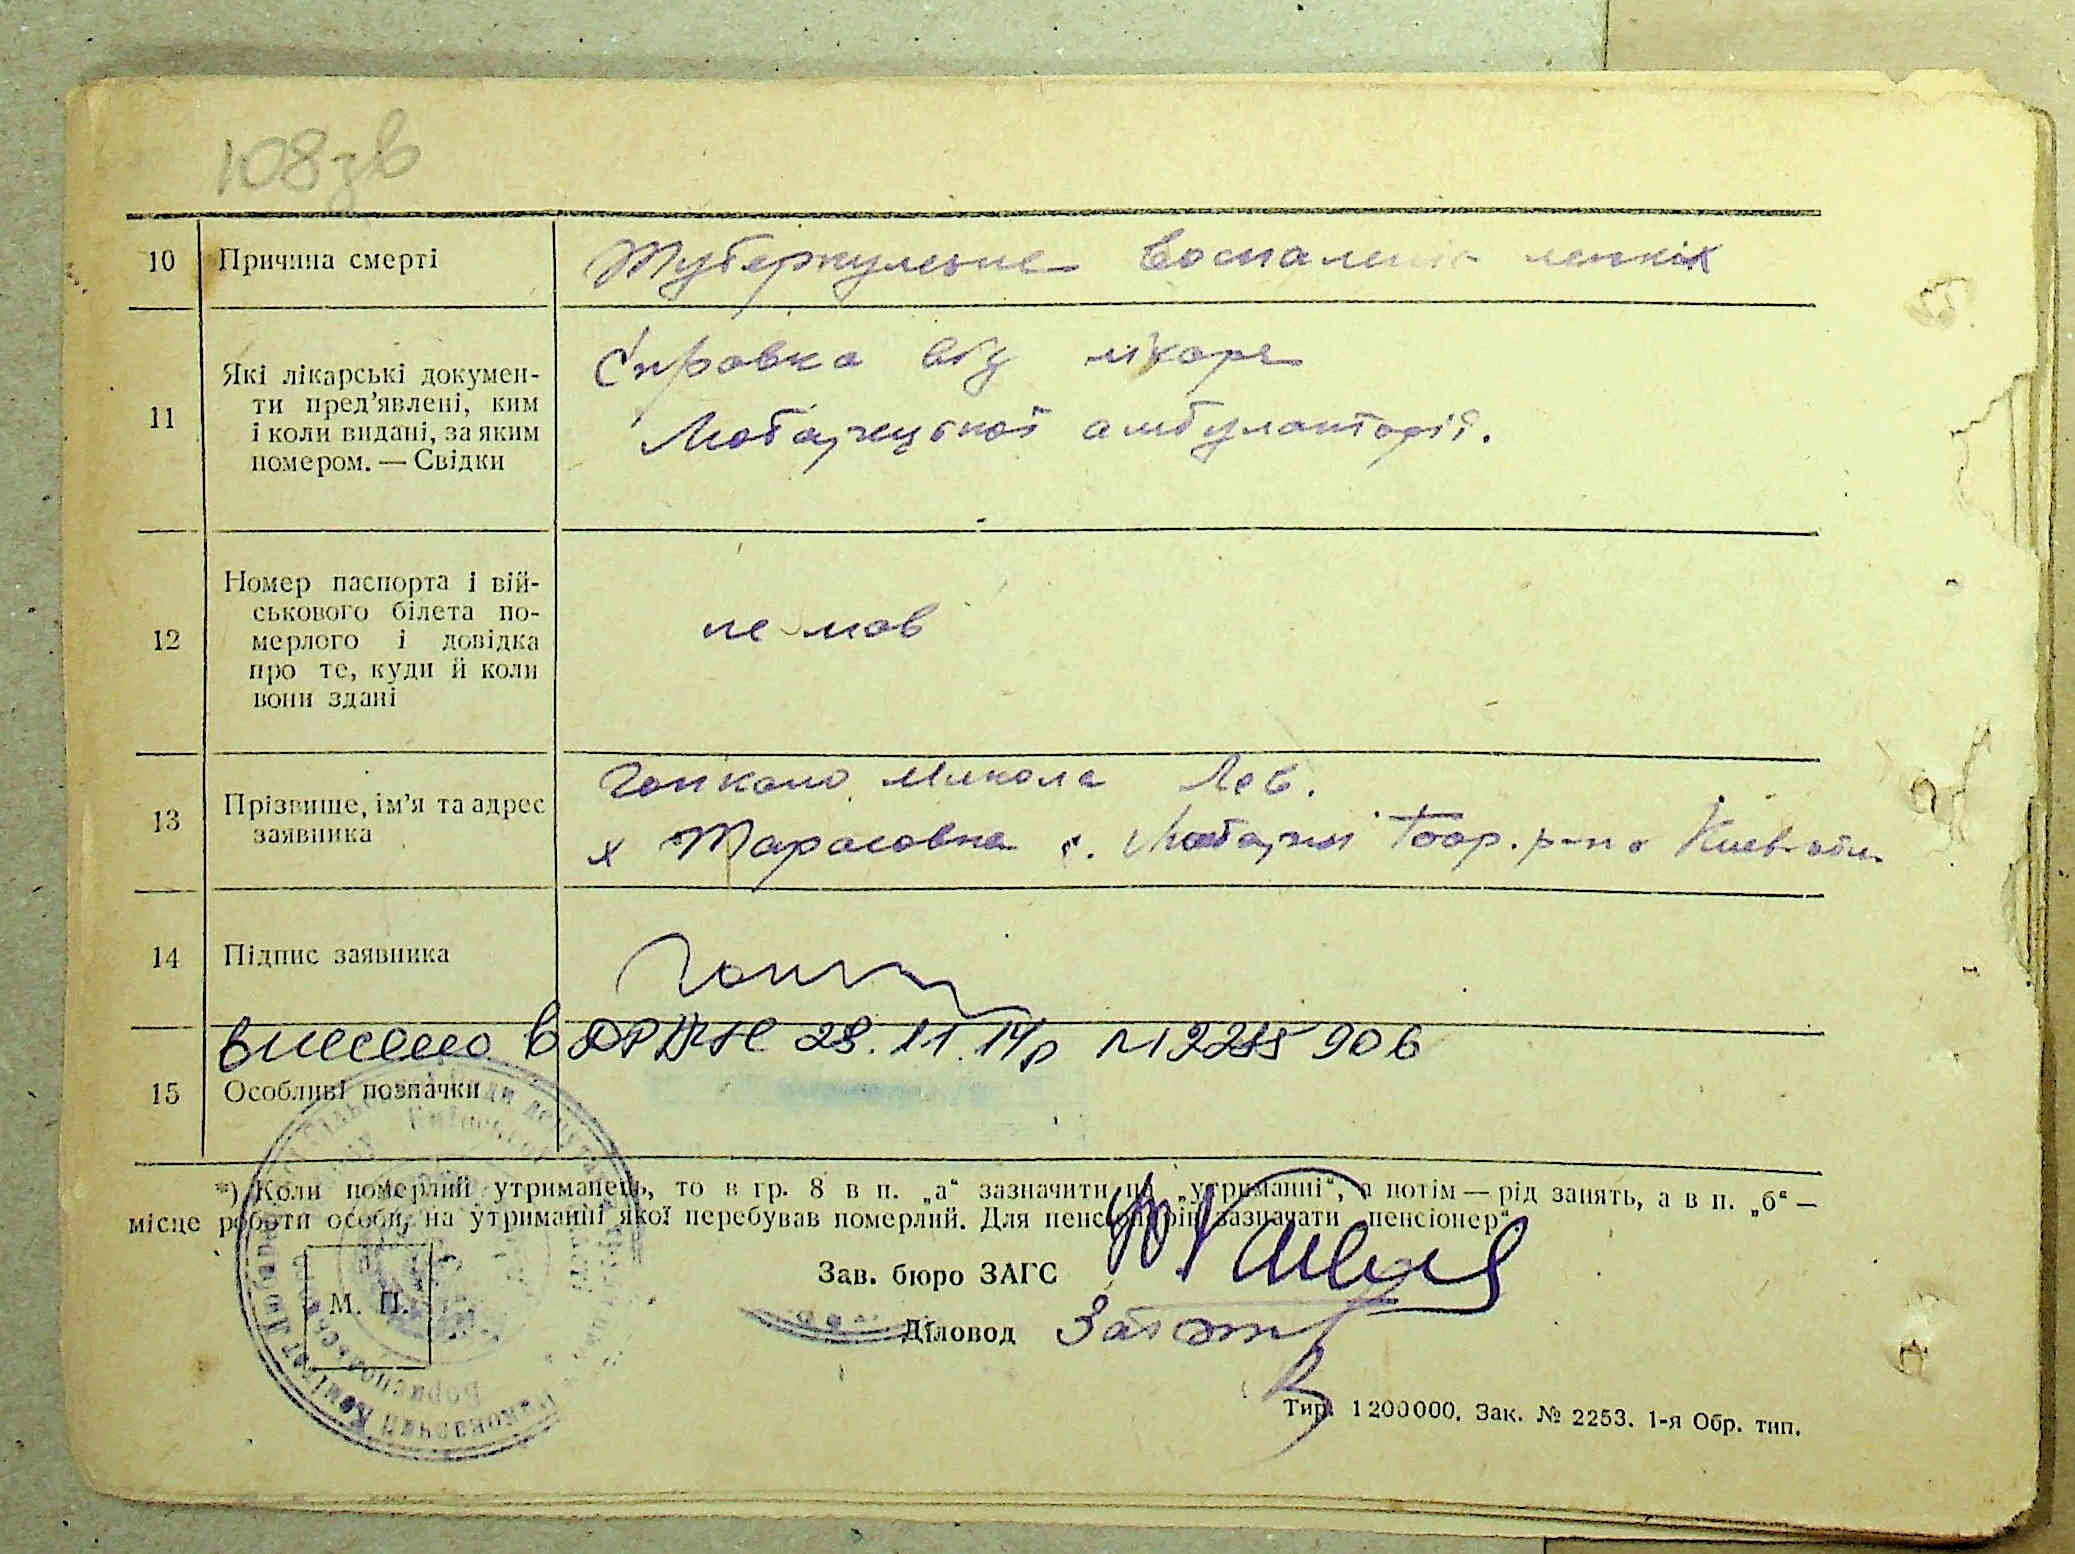 108зв
10 Причина смерті Туберкульозне воспаленія легкіх
11 Які лікарські документи пред'явлені, ким і коли видані, за яким номером. — Свідки
Справка від лікаря
Любарецької амбулаторії.
12 Номер паспорта і вій-
ськового білета по-
мерлого і довідка
про те, куди й коли
вони здані
не мав
13 Прізвише, ім'я та адрес
заявника
Микола Лев.
х Тарасовка с. Любарці Бор. р-на Киев. обл.
14 Підпис заявника
внесено в ДРАЦС 28.11.14р
15 Особливі позначки
*) Коли померлий утриманець, то в гр. 8 в п. „а“ зазначити на „утриманні“, а потім — рід занять, а в п. „б“ —
місце роботи особи, на утриманні якої перебував померлий. Для пенсіонерів зазначати „пенсіонер“.
Зав. бюро ЗАГС
М. П.
Діловод
Тир. 1 200000. Зак. № 2253. 1-я Обр. тип.